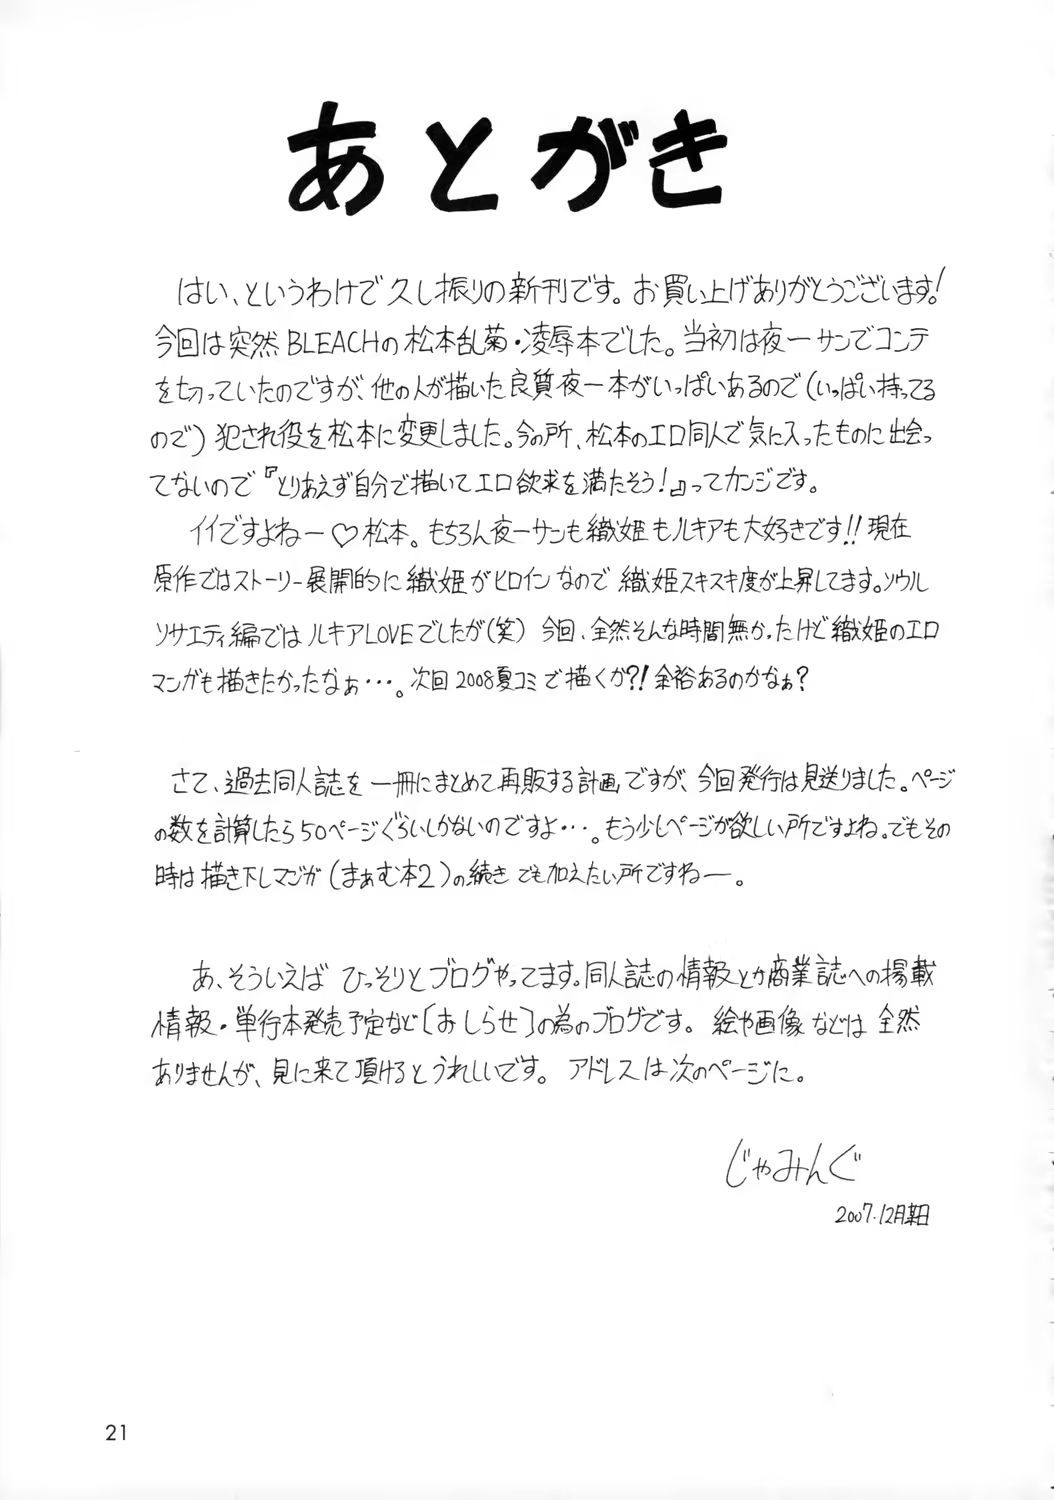 あとがき
はい、というわけで久し振りの新刊です。お買い上げありがとうございます!
今回は突然BLEACHの松本乱菊・凌辱本でした。当初は夜一サンでコンテ
を切っていたのですが、他の人が描いた良質夜一本がいっぱいあるので(いっぱい持ってる
ので) 犯され役を松本に変更しました。今の所、松本のエロ同人で気に入ったものに出会っ
てないので『とりあえず自分で描いてエロ欲求を満たそう!』ってカンジです。
イイですよねー♡松本。もちろん夜一サンも織姫もルキアも大好きです!!現在
原作ではストーリー展開的に織姫がヒロインなので織姫スキスキ度が上昇してます。ソウル
ソサエティ編ではルキアLOVEでしたが(笑) 今回、全然そんな時間無かったけど織姫のエロ
マンガも描きたかったなぁ・・・。次回2008夏コミで描くか?!余裕あるのかなぁ?
さて、過去同人誌を一冊にまとめて再販する計画ですが、今回発行は見送りました。ページ
の数を計算したら50ページぐらいしかないのですよ・・・。もう少しページが欲しい所ですよね。でもその
時は描き下しマンガ(まぁむ本2)の続きでも加えたい所ですねー。
あ、そういえばひっそりとブログやってます。同人誌の情報とか商業誌への掲載
情報・単行本発売予定など[おしらせ]の為のブログです。絵や画像などは全然
ありませんが、見に来て頂けるとうれしいです。アドレスは次のページに。
じゃみんぐ
2007.12月某日
21